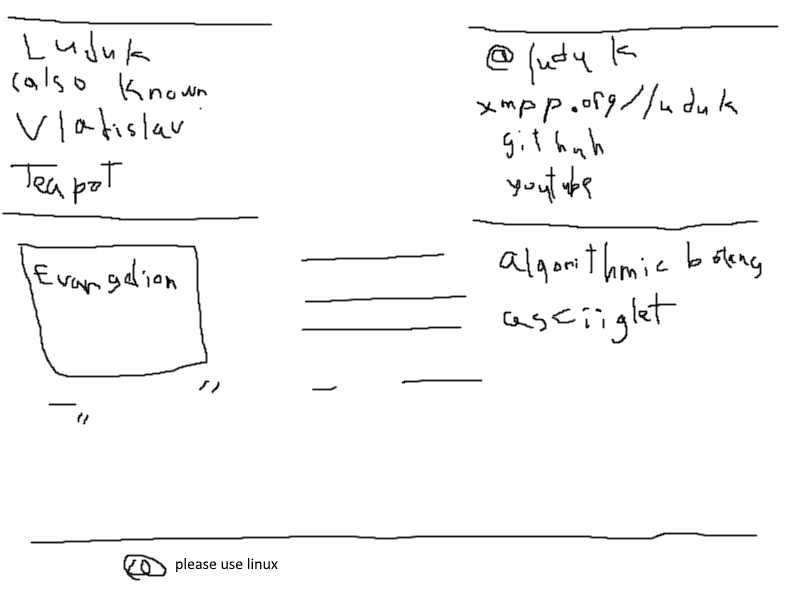 Luduk
(also known
Vlatislav
Teapot
@luduk
xmpp.org//luduk
github
youtube
Evangelion
algorithmic botany
asciiglet
please use linux